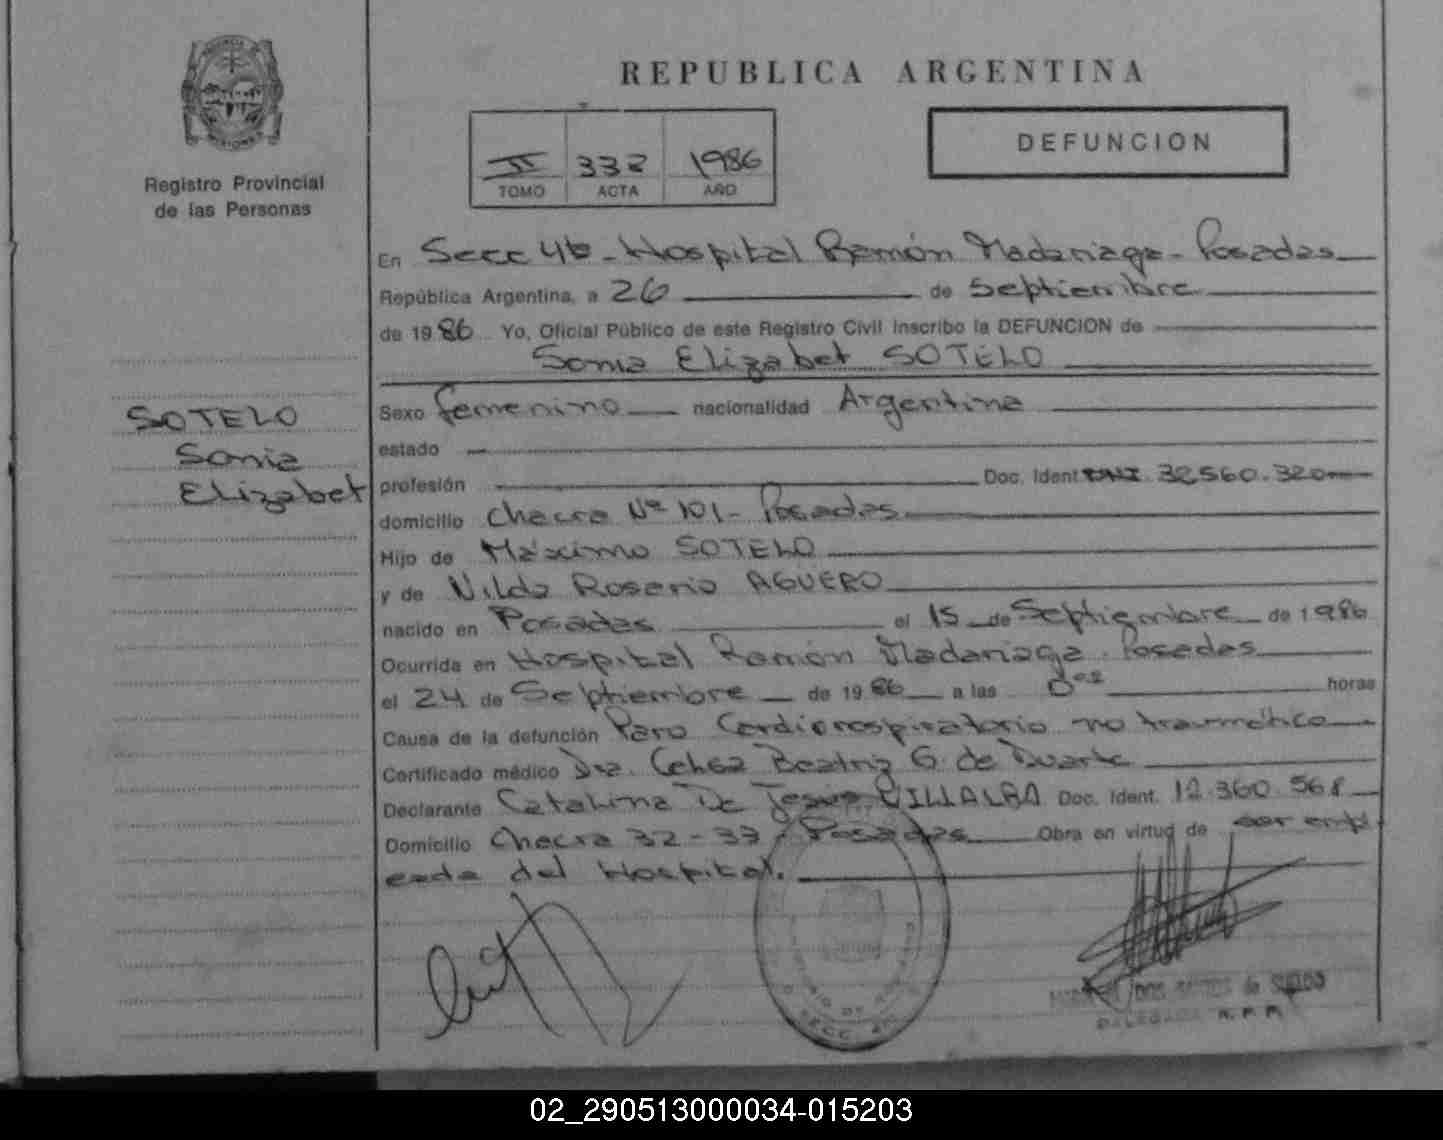 REPUBLICA ARGENTINA
DEFUNCION
II 332 1986
TOMO ACTA AÑO
Registro Provincial
de las Personas
SOTELO
Sonia
Elizabet
En Secc 4ta - Hospital Ramón Madariaga - Posadas
República Argentina, a 26 de Septiembre
de 1986 Yo, Oficial Público de este Registro Civil inscribo la DEFUNCION de
Sonia Elizabet SOTELO
Sexo femenino nacionalidad Argentina
estado
profesión Doc. Ident. DNI. 32560.320
domicilio Chacra Nº 101 - Posadas
Hijo de Máximo SOTELO
y de Nilda Rosario AGUERO
nacido en Posadas el 15 de Septiembre de 1986
Ocurrida en Hospital Ramón Madariaga - Posadas
el 24 de Septiembre de 1986 a las horas
Causa de la defunción Paro Cardiorespiratorio no traumático
Certificado médico Dra. Beatriz G. de Duarte
Declarante Catalina De Jesús VILLALBA Doc. Ident. 12.360.568
Domicilio Chacra 32-33 - Posadas Obra en virtud de ser empl
eada del Hospital.
DOS SANTOS de
DELEGADA R.P.P.
SECC
02_290513000034-015203